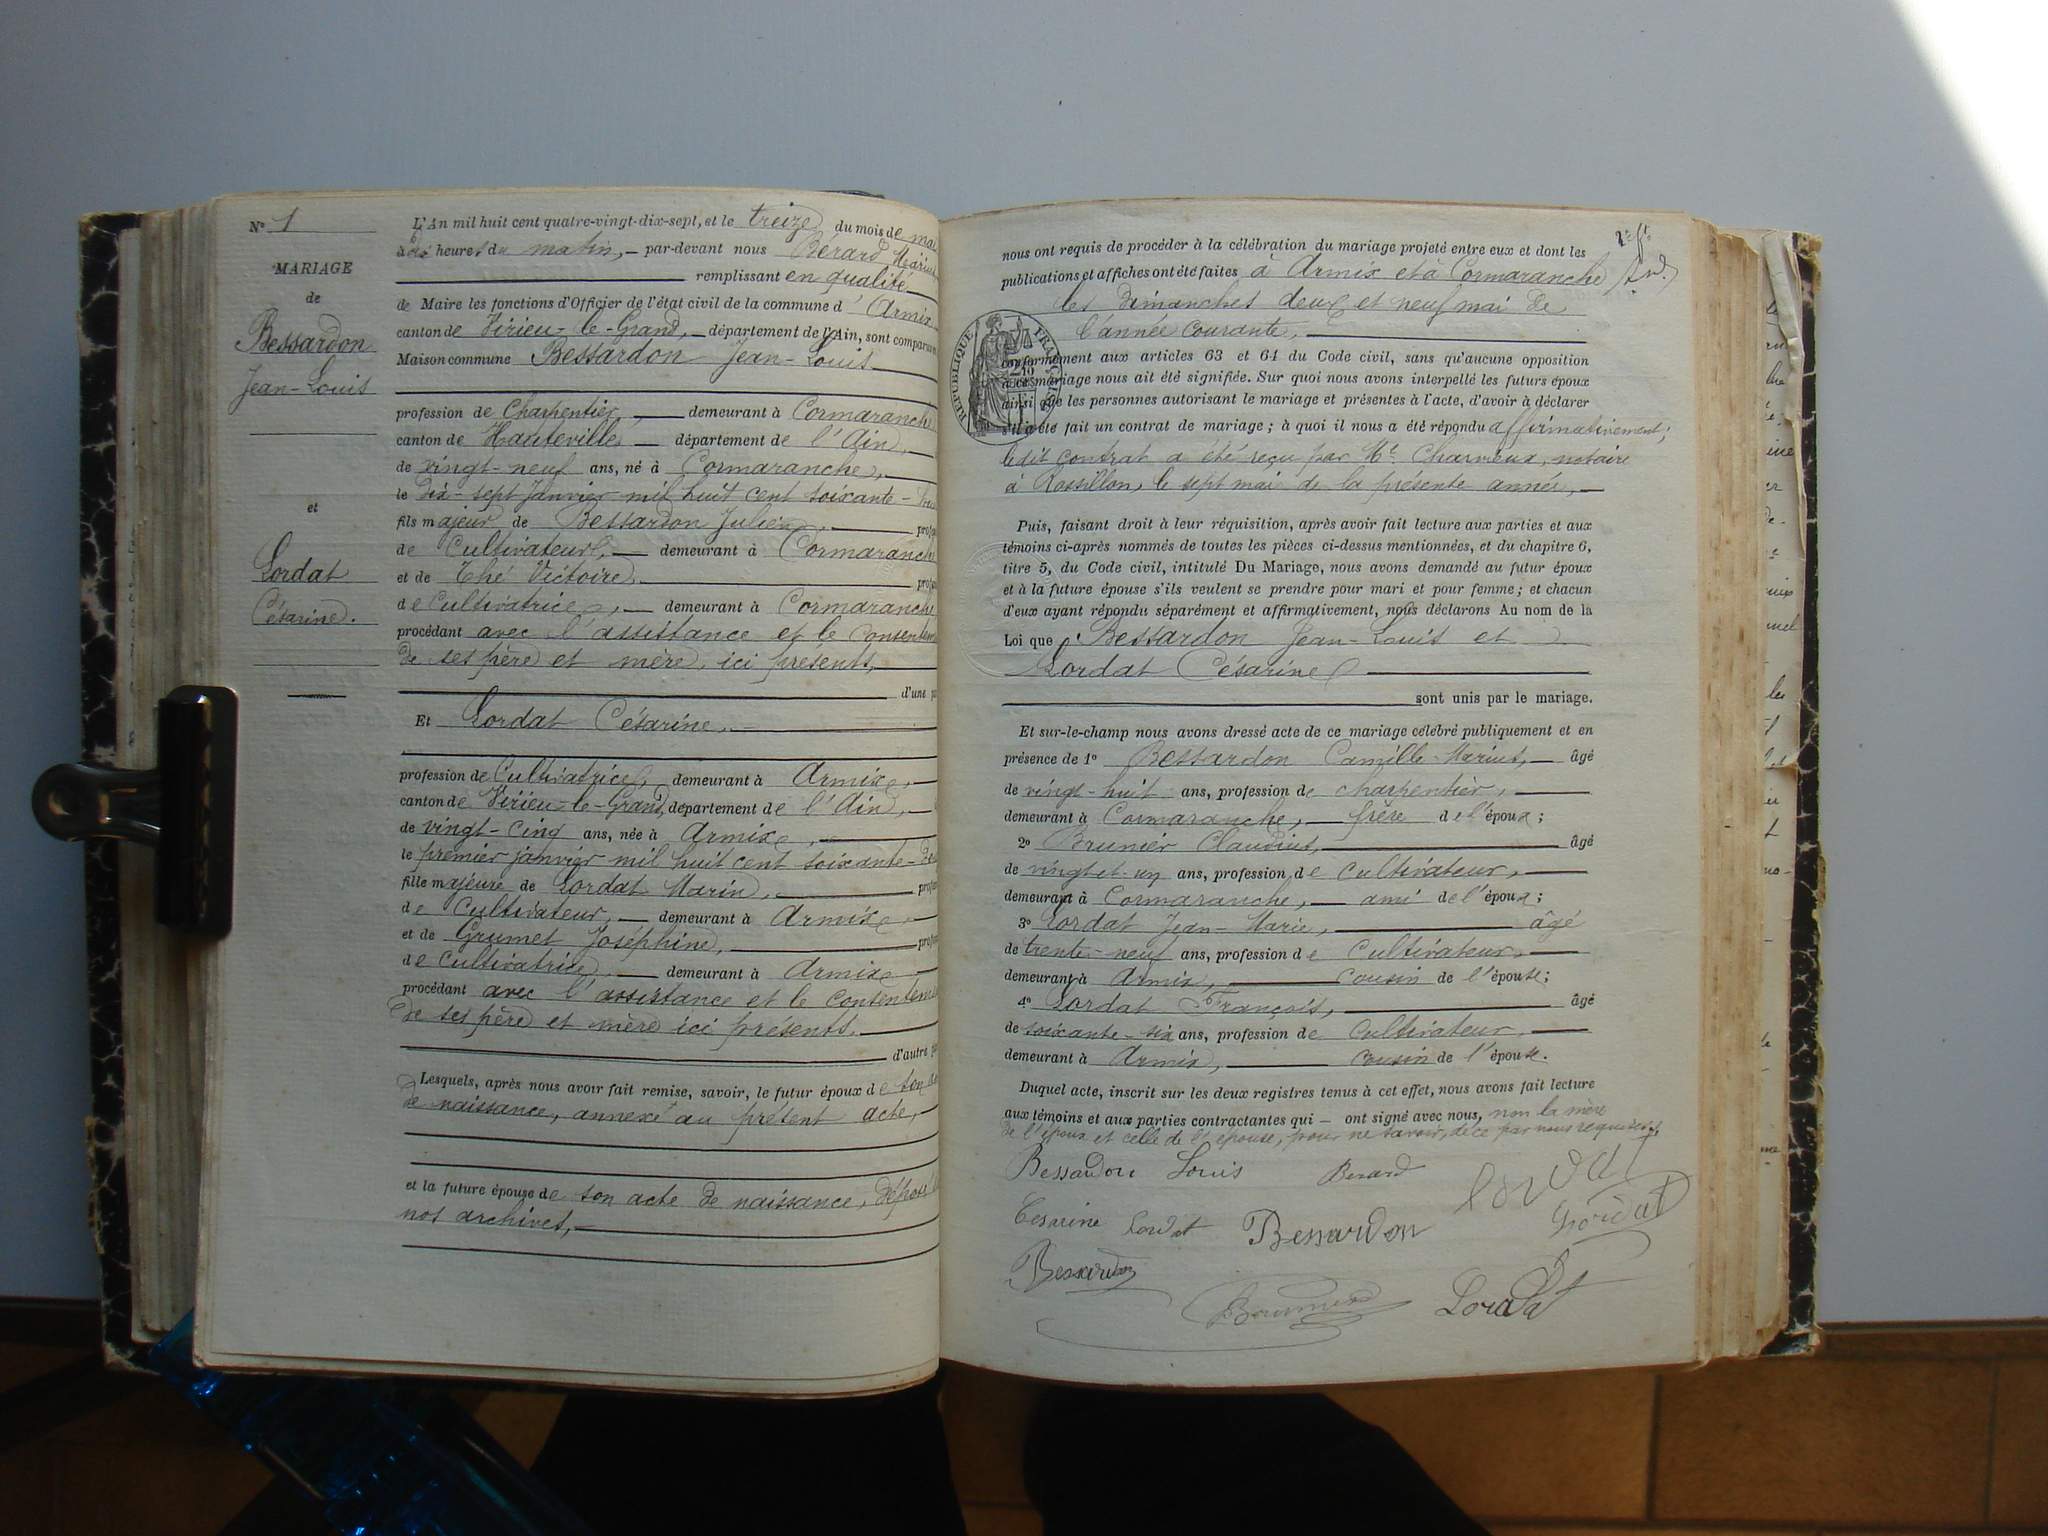 N° 1
MARIAGE
de
Bessardon
Jean-Louis
et
Lordat
Césarine.
L'An mil huit cent quatre-vingt-dix-sept, et le treize du mois de mai
heures du matin, par-devant nous Bérard Marius
remplissant en qualité
de Maire les fonctions d'Officier de l'état civil de la commune d'Armix
canton de Virieu-le-Grand, département de l'Ain, sont comparus
Maison commune Bessardon Jean-Louis
profession de Charpentier, demeurant à Cormaranche
canton de Hauteville département de l'Ain,
de vingt-neuf ans, né à Cormaranche,
le dix-sept Janvier mil huit cent soixante-
fils majeur de Bessardon Julien, prof
de Cultivateur, demeurant à Cormaranche
et de Thé Victoire, prof
de Cultivatrice, demeurant à Cormaranche
procédant avec l'assistance et le consentem
de ses père et mère, ici présents,
d'une pa
Et Lordat Césarine,
profession de Cultivatrice, demeurant à Armix,
canton de Virieu-le-Grand, département de l'Ain,
de vingt-cinq ans, née à Armix,
le premier janvier mil huit cent soixante-
fille majeure de Lordat Marin, prof
de Cultivateur, demeurant à Armix
et de Grumet Joséphine, prof
de Cultivatrice, demeurant à Armix
procédant avec l'assistance et le consenteme
de ses père et mère ici présents.
d'autre pa
Lesquels, après nous avoir fait remise, savoir, le futur époux de son
de naissance, annexé au présent acte,
et la future épouse de son acte de naissance, déposé
nos archives,
nous ont requis de procéder à la célébration du mariage projeté entre eux et dont les
publications et affiches ont été faites à Armix et à Cormaranche
les dimanches deux et neuf mai de
l'année courante,
RÉPUBLIQUE FRANÇAISE
conformément aux articles 63 et 64 du Code civil, sans qu'aucune opposition
à ce mariage nous ait été signifiée. Sur quoi nous avons interpellé les futurs époux
ainsi que les personnes autorisant le mariage et présentes à l'acte, d'avoir à déclarer
s'il a été fait un contrat de mariage ; à quoi il nous a été répondu affirmativement ;
ledit contrat a été reçu par Me. Charvieux, notaire
à Rossillon, le sept mai de la présente année,
Puis, faisant droit à leur réquisition, après avoir fait lecture aux parties et aux
témoins ci-après nommés de toutes les pièces ci-dessus mentionnées, et du chapitre 6,
titre 5, du Code civil, intitulé Du Mariage, nous avons demandé au futur époux
et à la future épouse s'ils veulent se prendre pour mari et pour femme ; et chacun
d'eux ayant répondu séparément et affirmativement, nous déclarons Au nom de la
Loi que Bessardon Jean-Louis et
Lordat Césarine
sont unis par le mariage.
Et sur-le-champ nous avons dressé acte de ce mariage célébré publiquement et en
présence de 1° Bessardon Camille-Marius, âgé
de vingt-huit ans, profession de charpentier,
demeurant à Cormaranche, frère de l'époux ;
2° Brunier Claudius, âgé
de vingt et un ans, profession de Cultivateur,
demeurant à Cormaranche, ami de l'époux ;
3° Lordat Jean-Marie, âgé
de trente-neuf ans, profession de Cultivateur,
demeurant à Armix, cousin de l'épouse ;
4° Lordat François, âgé
de soixante-six ans, profession de Cultivateur,
demeurant à Armix, cousin de l'épouse.
Duquel acte, inscrit sur les deux registres tenus à cet effet, nous avons fait lecture
aux témoins et aux parties contractantes qui ont signé avec nous, non la mère
de l'époux et celle de l'épouse, pour ne savoir, de ce par nous requises.
Bessardon Louis Berard Lordat
Cesarine Lordat Bessardon Lordat
Bessardon
Lordat